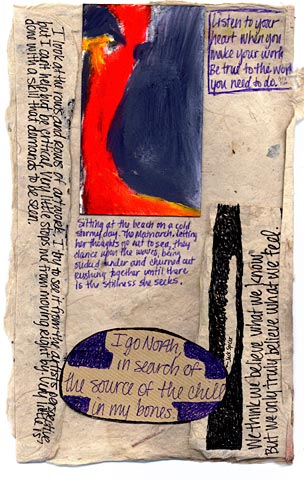 Listen to your
heart when you
make your work
Be true to the work
you need to do.
I look at the rows and rows of artwork. I try to see it from the artist's perspective,
but I can't help but be critical. Very little stops me from moving eighty. Very little is
done with a skill that demands to be seen
Sitting at the beach on a cold
stormy day. The Matriarch. letting
her thoughts go out to sea, they
dance upon the waves, being
sucked under and churned out
rushing together until there
is the stillness she seeks.
I go North,
in search of
the source of the chill
in my bones.
We think we believe what we know,
But we only truly believe what we feel.
Jack Spicer